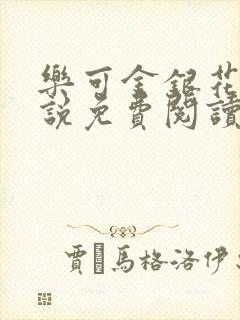 樂可金銀花
説免費閱讀
賈·馬格洛伊